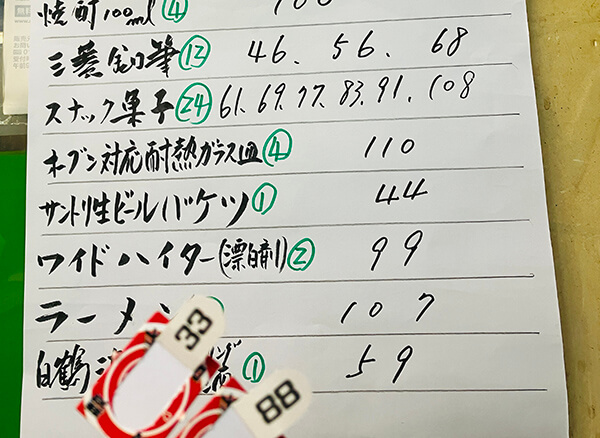 焼酎100ml④
三菱鉛筆⑫ 46. 56. 68
スナック菓子㉔ 61.69.77.83.91.108
オーブン対応耐熱ガラス皿④ 110
サントリ生ビールバケツ① 44
ワイドハイター(漂白剤)② 99
ラーメン 107
白鶴 ① 59
33
88